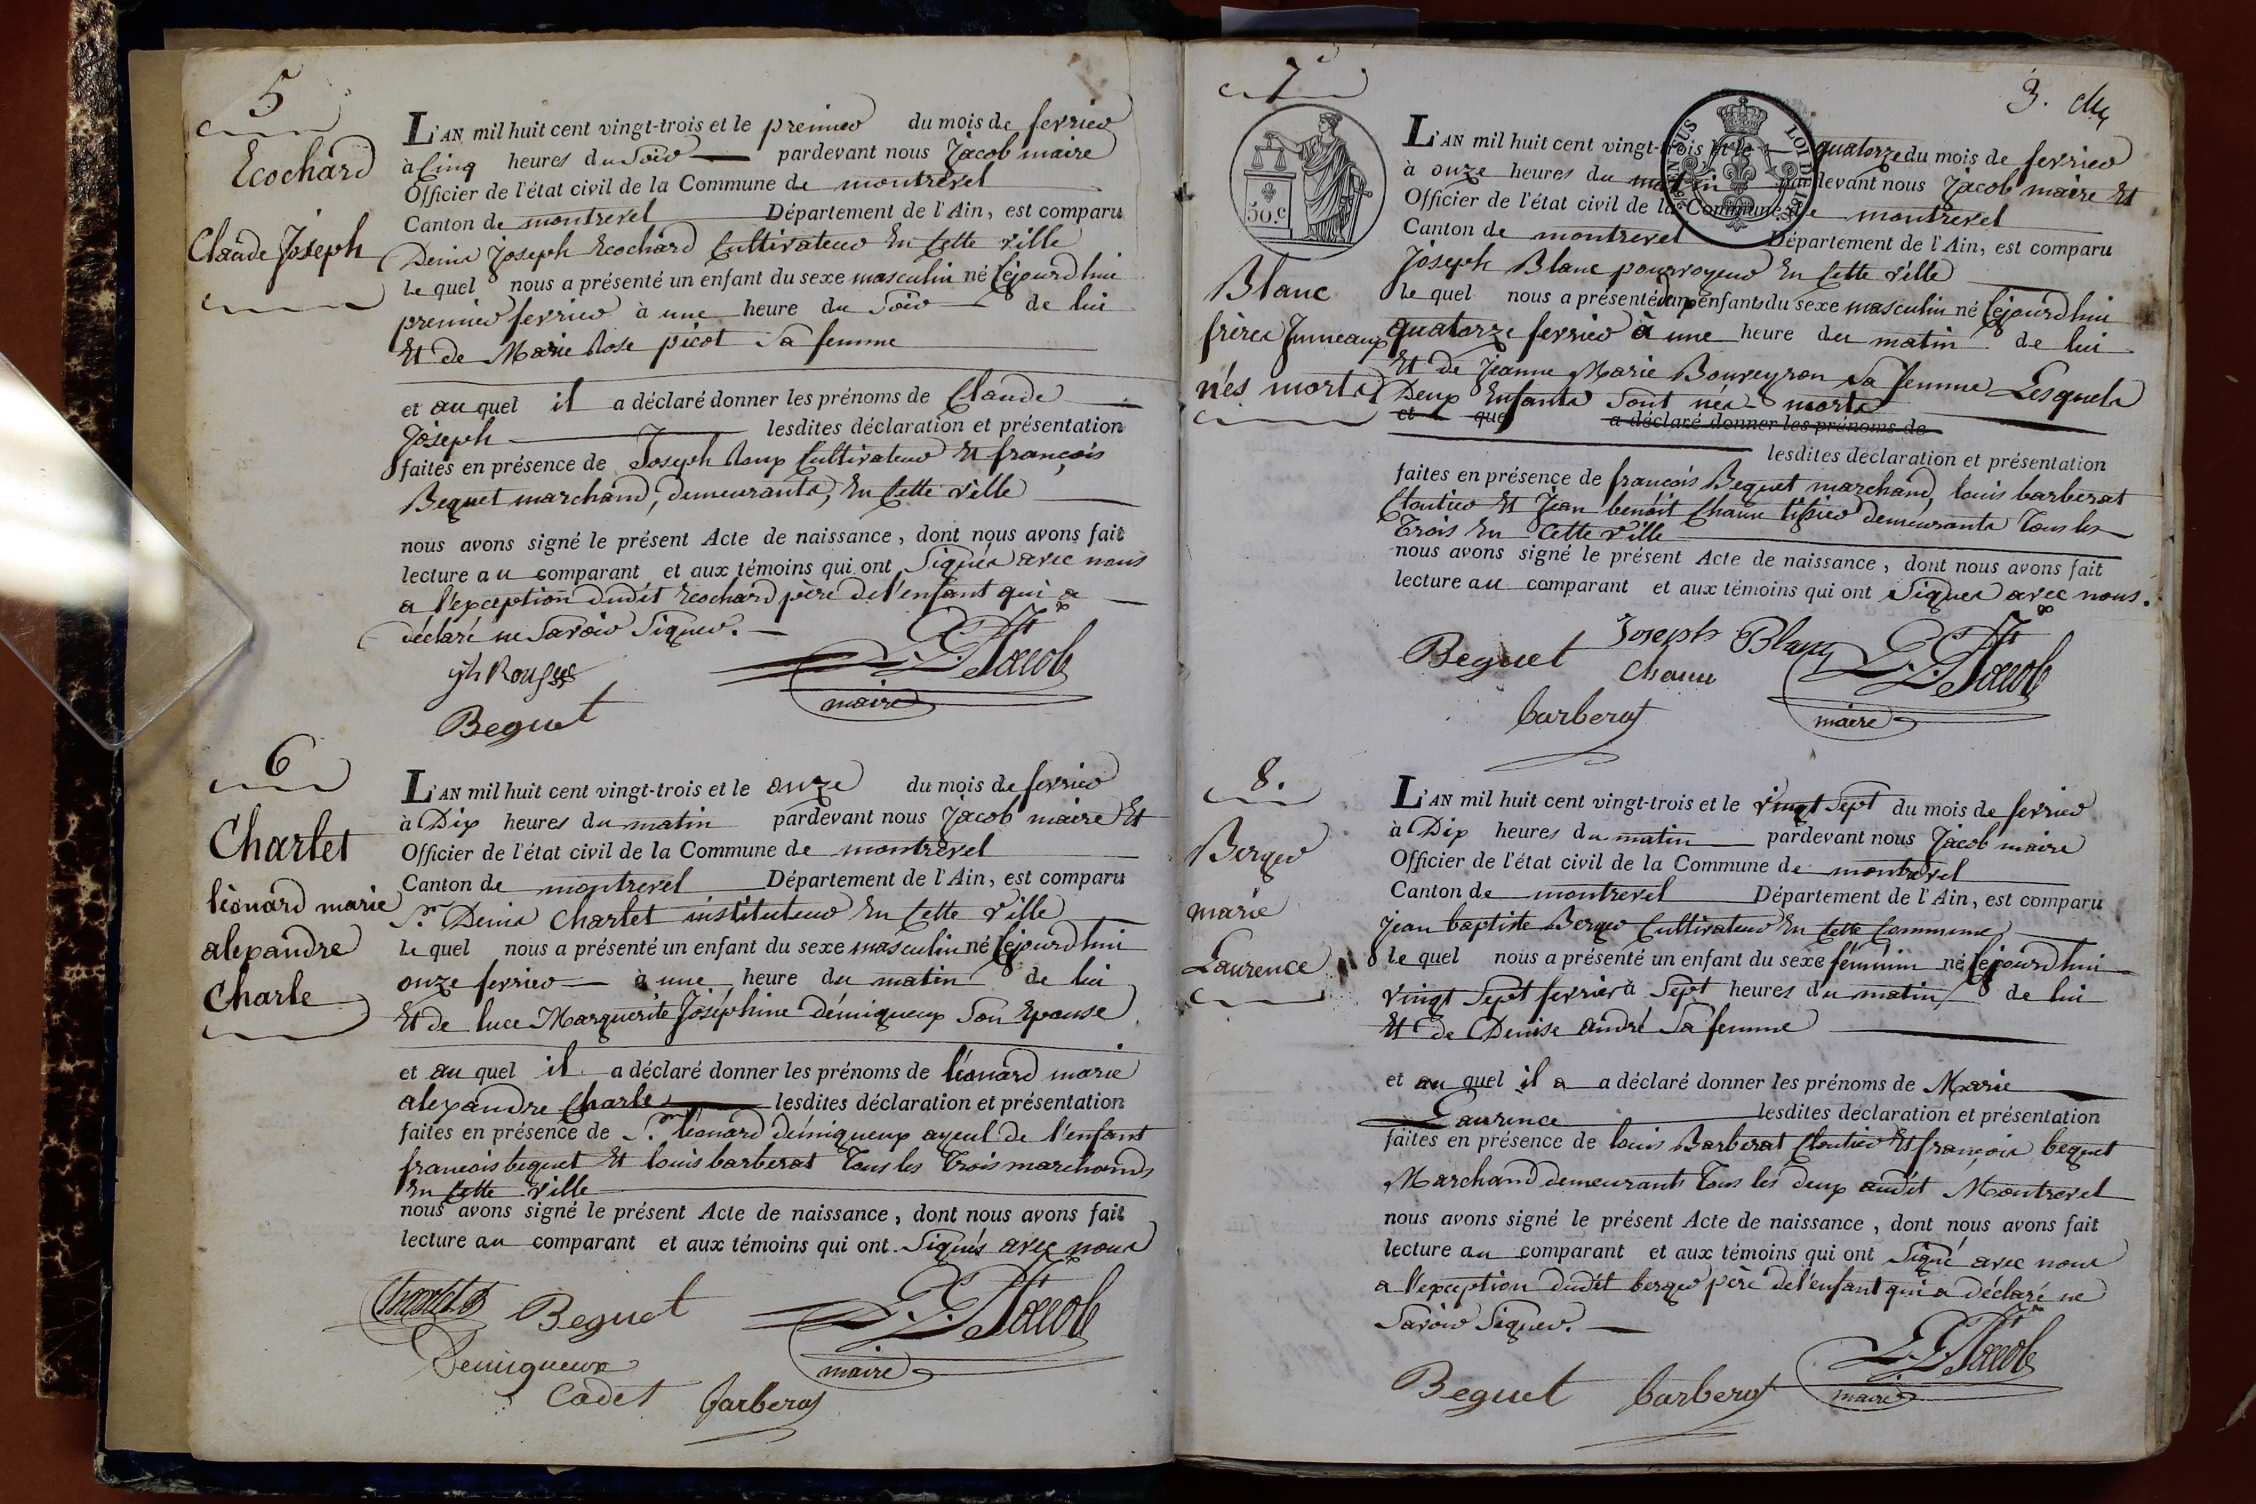 5
Ecochard
Claude Joseph
L'AN mil huit cent vingt-trois et le premier du mois de fevrier
à Cinq heures du Soir pardevant nous Jacob maire
Officier de l'état civil de la Commune de montrevel
Canton de montrevel Département de l'Ain, est comparu
Denis Joseph Ecochard Cultivateur En Cette ville
le quel nous a présenté un enfant du sexe masculin né Cejourd'hui
premier fevrier à une heure du Soir de lui
Et de Marie Rose picot Sa femme
et au quel il a déclaré donner les prénoms de Claude
Joseph lesdites déclaration et présentation
faites en présence de Joseph Cultivateur Et françois
Beguet marchand, demeurants, En Cette ville
nous avons signé le présent Acte de naissance, dont nous avons fait
lecture au comparant et aux témoins qui ont Signés avec nous
a l'exception dudit Ecochard père de l'enfant qui a
déclaré ne Savoir Signer.
Jacob
maire
Beguet
6
Charlet
léonard marie
alexandre
Charle
L'AN mil huit cent vingt-trois et le onze du mois de fevrier
à Dix heures du matin pardevant nous Jacob maire Et
Officier de l'état civil de la Commune de montrevel
Canton de montrevel Département de l'Ain, est comparu
Sr. Denis Charlet instituteur En Cette ville
le quel nous a présenté un enfant du sexe masculin né Cejourd'hui
onze fevrier à une heure du matin de lui
Et de luce Marguerite Joséphine démiqueux Son Epouse
et au quel il a déclaré donner les prénoms de léonard marie
alexandre Charle lesdites déclaration et présentation
faites en présence de Sr. léonard démiqueux ayeul de l'enfant
francois beguet Et louis barberat Tous les Trois marchands
En Cette ville
nous avons signé le présent Acte de naissance, dont nous avons fait
lecture au comparant et aux témoins qui ont Signés avec nous
Charlet Beguet Jacob
Demiqueux maire
Cadet barberat
7
3.
50.c
Blanc
frères Jumeaux
nés morts
L'AN mil huit cent vingt-trois et le quatorze du mois de fevrier
à onze heures du matin pardevant nous Jacob maire Et
Officier de l'état civil de la Commune de montrevel
Canton de montrevel Département de l'Ain, est comparu
Joseph Blanc pourvoyeur En Cette ville
le quel nous a présenté deux enfants du sexe masculin né Cejourd'hui
quatorze fevrier à une heure du matin de lui
Et de Jeanne Marie Bouveyron Sa femme Lesquels
Deux Enfants Sont nés morts
et quel a déclaré donner les prénoms de
lesdites déclaration et présentation
faites en présence de francois Beguet marchand, louis barberat
Cloutier Et Jean benoit Chanu demeurants Tous les
Trois En Cette ville
nous avons signé le présent Acte de naissance, dont nous avons fait
lecture au comparant et aux témoins qui ont Signés avec nous.
Joseph Blanc
Beguet Chanu Jacob
barberat maire
8.
Berger
marie
Laurence
L'AN mil huit cent vingt-trois et le vingt Sept du mois de fevrier
à Dix heures du matin pardevant nous Jacob maire
Officier de l'état civil de la Commune de montrevel
Canton de montrevel Département de l'Ain, est comparu
Jean baptiste Berger Cultivateur En Cette Commune
le quel nous a présenté un enfant du sexe féminin né Cejourd'hui
vingt Sept fevrier à Sept heures du matin de lui
Et de Denise andré Sa femme
et au quel il a a déclaré donner les prénoms de Marie
Laurence lesdites déclaration et présentation
faites en présence de louis Barberat Cloutier Et françois beguet
Marchand demeurants Tous les deux audit Montrevel
nous avons signé le présent Acte de naissance, dont nous avons fait
lecture au comparant et aux témoins qui ont Signé avec nous
a l'exception dudit berger père de l'enfant qui a déclaré ne
Savoir Signer.
Jacob
Beguet barberat maire